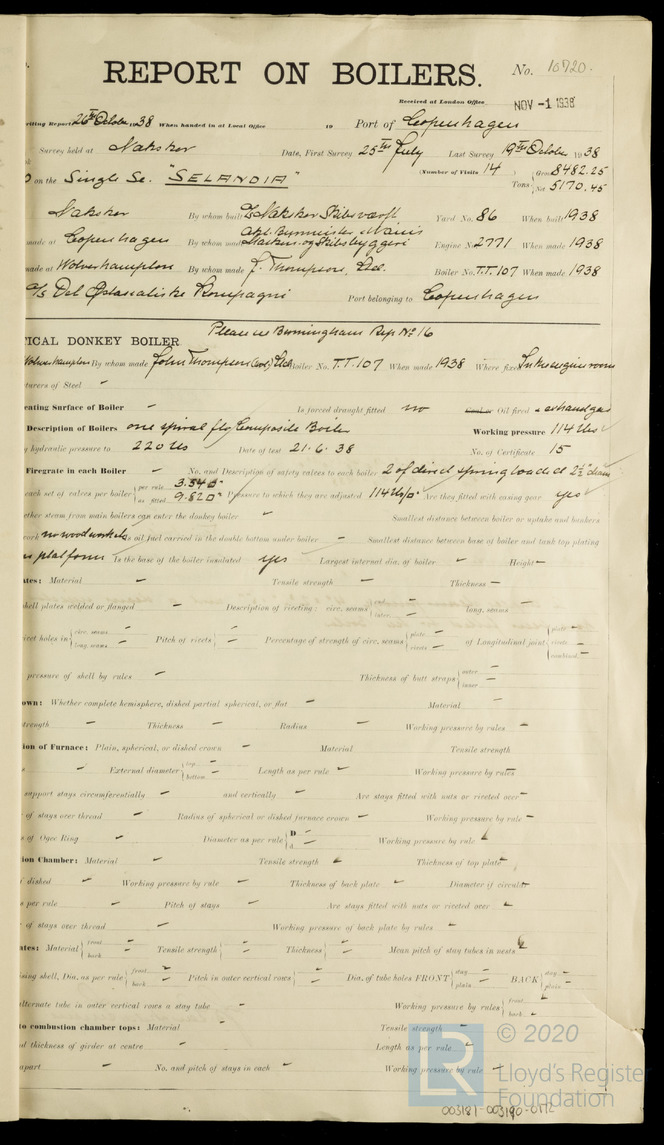 REPORT ON BOILERS.
No. 10720.
Received at London Office NOV -1 1938
writing Report 26th October 1938 When handed in at Local Office to Port of Copenhagen
Survey held at Nakskov Date, First Survey 25th July Last Survey 19th October 1938
(Number of Visits 14) Gross 8482.25
on the Single Sc. "SELANDIA" Tons Net 5170.45
Nakskov By whom built Nakskov Skibsværft Yard No. 86 When built 1938
made at Copenhagen By whom made Akt. Burmeister & Wains Maskin- og Skibsbyggeri Engine No. 2771 When made 1938
made at Wolverhampton By whom made J. Thompson, Ltd. Boiler No. T.T.107 When made 1938
A/S Det Østasiatiske Kompagni Port belonging to Copenhagen
ICAL DONKEY BOILER Please see Birmingham Rep No 16
Wolverhampton By whom made John Thompson Ltd Boiler No. T.T.107 When made 1938 Where fixed In the engine room
turers of Steel -
eating Surface of Boiler - Is forced draught fitted no Oil fired & exhaust gas
Description of Boilers one spiral flo Composite Boiler Working pressure 114 lbs
hydraulic pressure to 220 lbs Date of test 21.6.38 No. of Certificate 15
Firegrate in each Boiler - No. and Description of safety valves to each boiler 2 of direct spring loaded 2½" diam
each set of valves per boiler per rule as fitted 9.820" Pressure to which they are adjusted 114 lbs/□" Are they fitted with easing gear yes
ether steam from main boilers can enter the donkey boiler - Smallest distance between boiler or uptake and bunkers
no woodworks is oil fuel carried in the double bottom under boiler - Smallest distance between base of boiler and tank top plating
platform Is the base of the boiler insulated yes Largest internal dia. of boiler - Height -
ates: Material - Tensile strength - Thickness -
hell plates welded or flanged - Description of riveting: circ. seams long. seams -
ivet holes in circ. seams long. seams Pitch of rivets - Percentage of strength of circ. seams plate rivets of Longitudinal joint plate rivets combined -
pressure of shell by rules - Thickness of butt straps outer inner -
own: Whether complete hemisphere, dished partial spherical, or flat - Material -
strength - Thickness - Radius - Working pressure by rules -
ion of Furnace: Plain, spherical, or dished crown - Material Tensile strength
External diameter top bottom - Length as per rule - Working pressure by rules -
support stays circumferentially - and vertically - Are stays fitted with nuts or riveted over -
of stays over thread - Radius of spherical or dished furnace crown - Working pressure by rule -
of Ogee Ring - Diameter as per rule D d - Working pressure by rule -
ion Chamber: Material - Tensile strength - Thickness of top plate -
dished - Working pressure by rule - Thickness of back plate - Diameter if circular -
s per rule - Pitch of stays - Are stays fitted with nuts or riveted over -
of stays over thread - Working pressure of back plate by rules -
ates: Material front back - Tensile strength - Thickness - Mean pitch of stay tubes in nests -
ising shell, Dia. as per rule front back - Pitch in outer vertical rows - Dia. of tube holes FRONT stay plain - BACK stay plain -
alternate tube in outer vertical rows a stay tube - Working pressure by rules front back -
to combustion chamber tops: Material - Tensile strength -
d thickness of girder at centre - Length as per rule -
apart - No. and pitch of stays in each - Working pressure by rule -
LR © 2020
Lloyd's Register
Foundation
003181-003190-0172